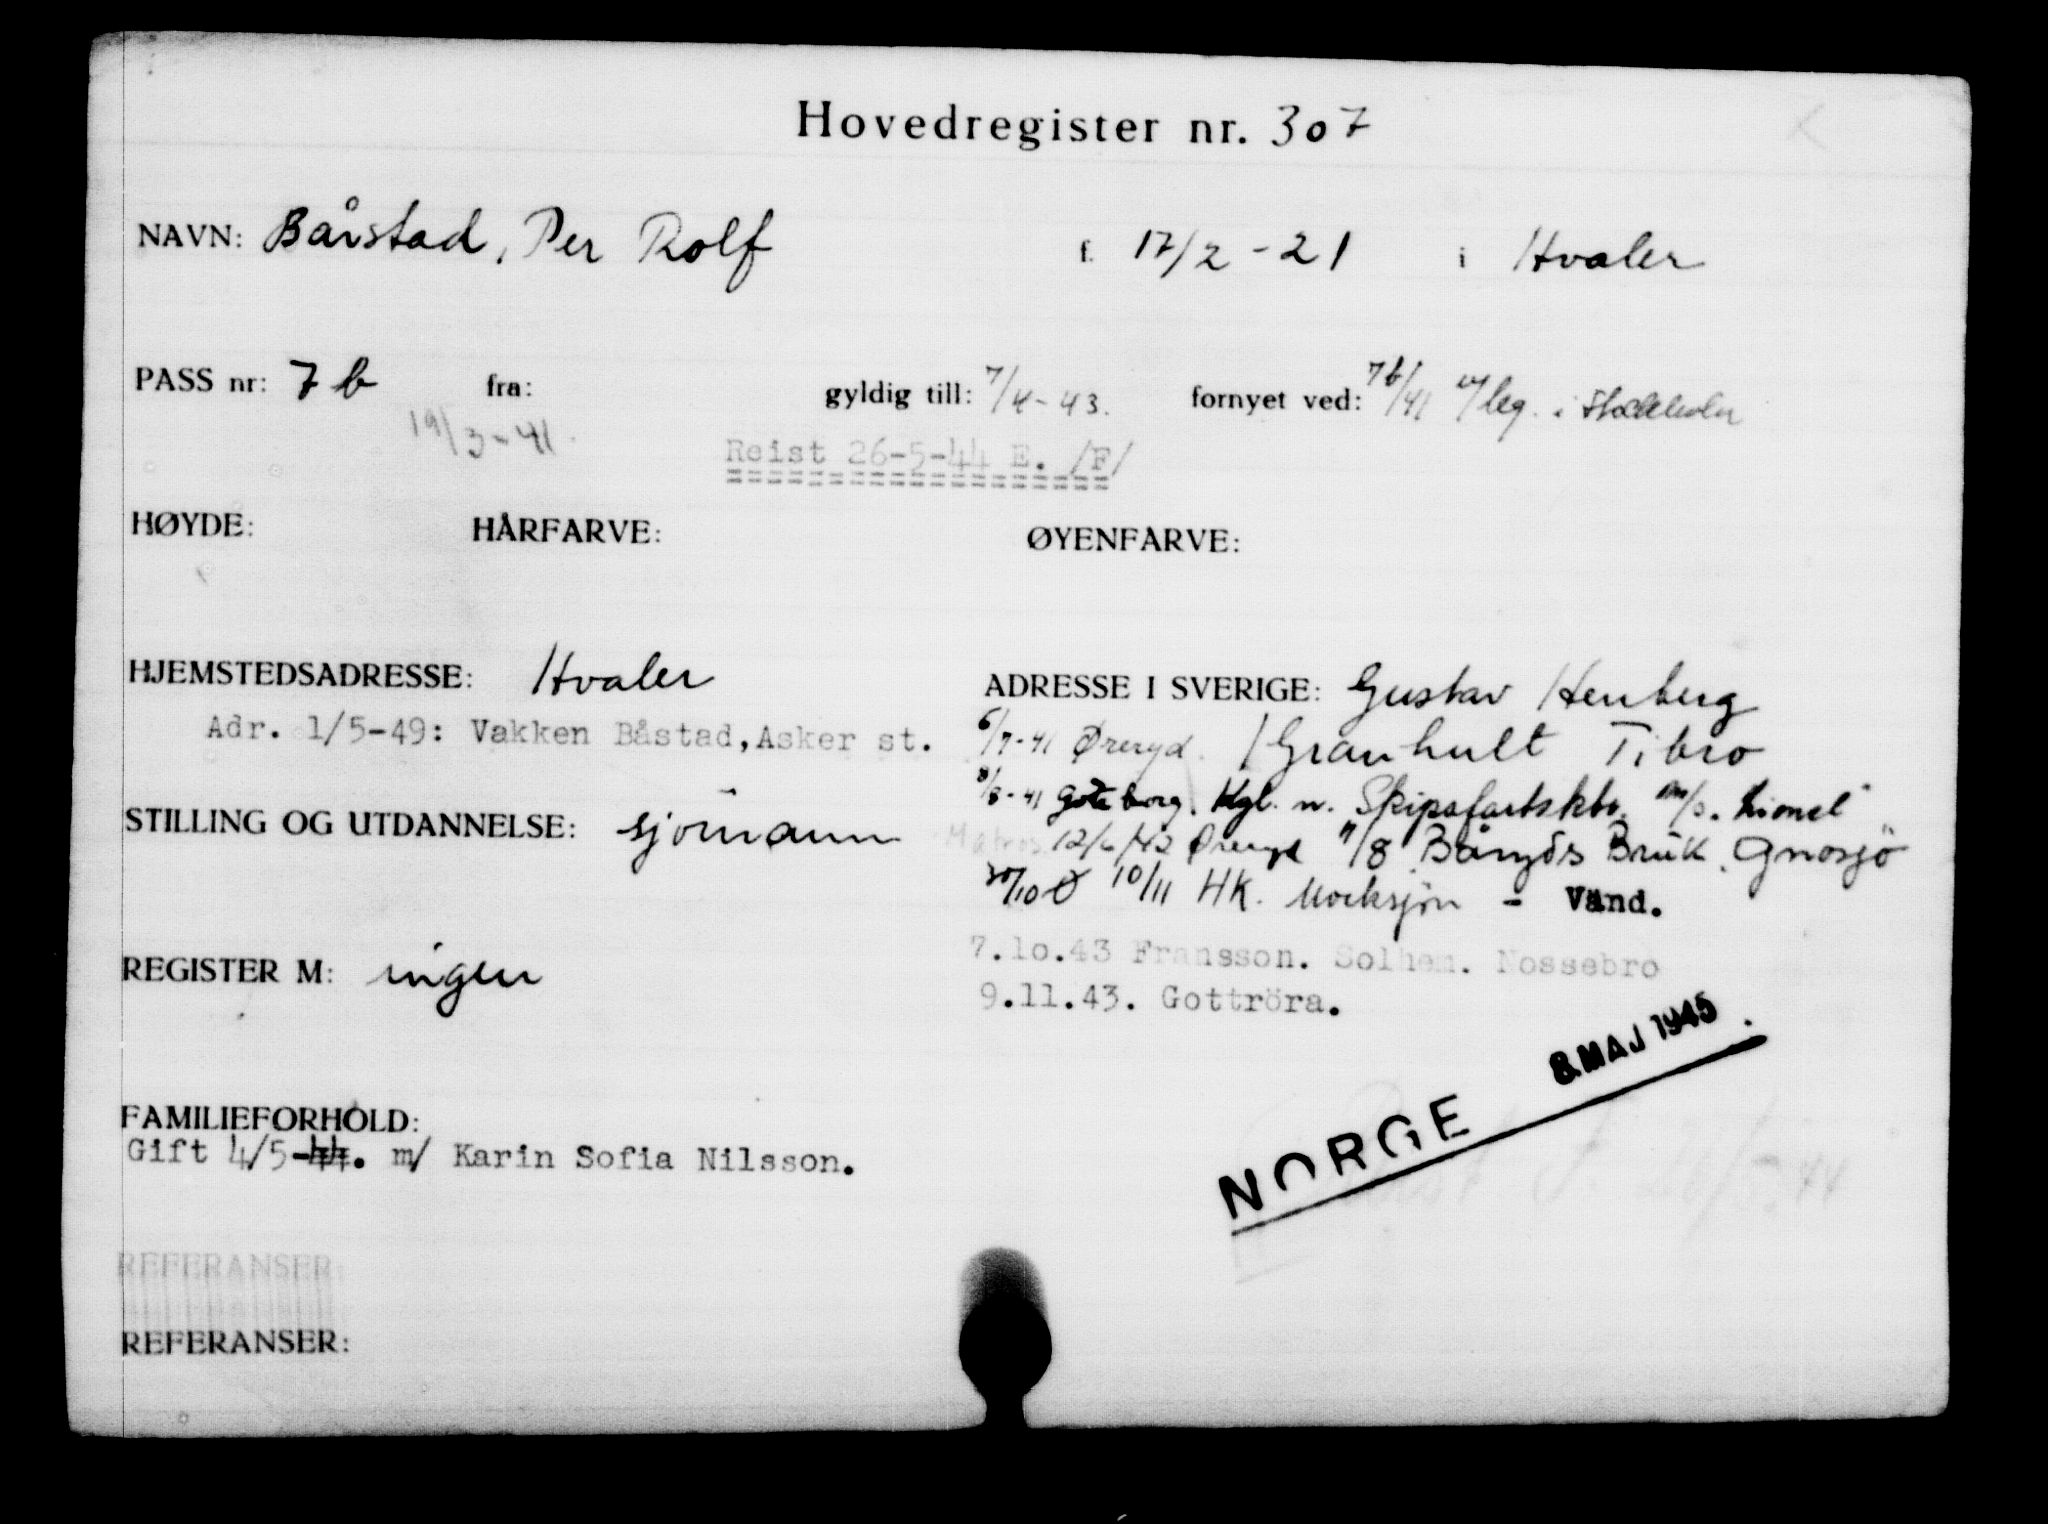 Hovedregister nr. 307
NAVN: Bårstad, Per Rolf f. 17/2 - 21 i Hvaler
PASS nr: 7 b fra: gyldig till: 7/4 - 43. fornyet ved: 7 b/41 leg. i Stockholm
19/3 - 41.
Reist 26-5-44 E. /F/
HØYDE: HÅRFARVE: ØYENFARVE:
HJEMSTEDSADRESSE: Hvaler
Adr. 1/5-49: Vakken Båstad, Asker st.
ADRESSE I SVERIGE: Gustav Henberg
6/7-41 Øreryd. / Granhult Tibro
8/8-41 Göteborg. Kgl. n. Skipsfartskto. m/s. Lionel"
STILLING OG UTDANNELSE: sjömann
Matros. 12/6/42 Øreryd 11/8 Båryds Bruk. Gnosjö
30/10 Ø 10/11 HK. Mocksjön - Vänd.
7.10.43 Fransson. Solhem. Nossebro
9.11.43. Gottröra.
REGISTER M: ingen
8. MAJ 1945
NORGE
FAMILIEFORHOLD:
Gift 4/5-44. m/ Karin Sofia Nilsson.
Reist 26/5-44
REFERANSER:
REFERANSER: